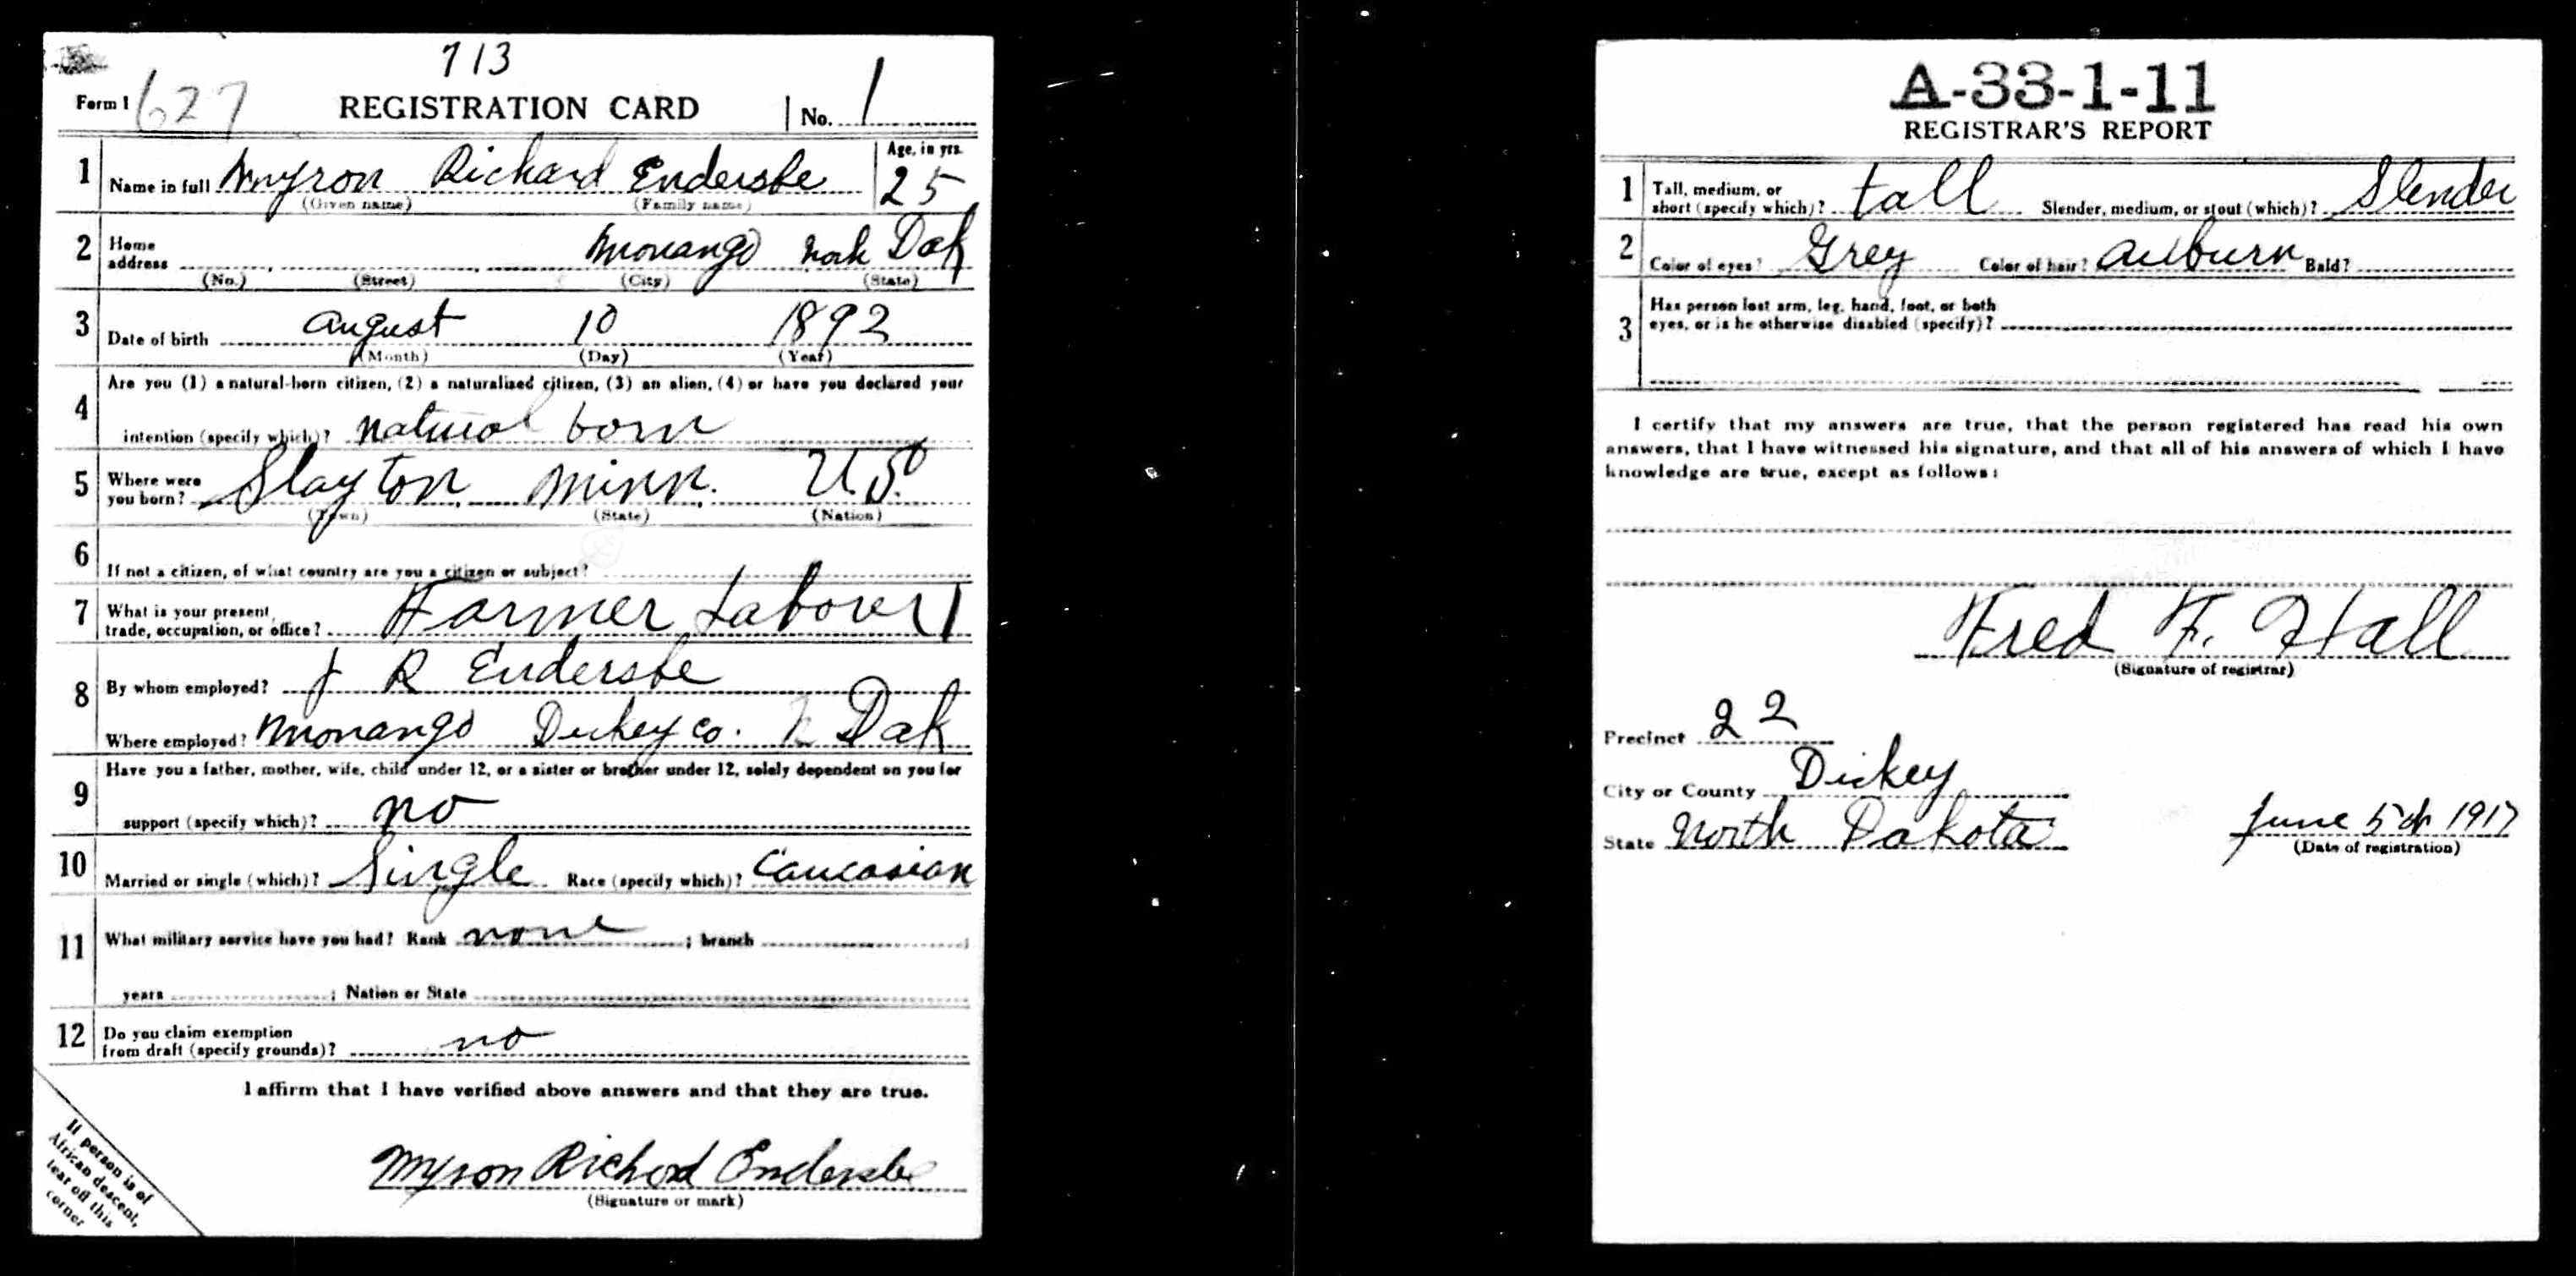 713
Form 1 627 REGISTRATION CARD No. 1
1 Name in full Myron Richard Endersbe Age, in yrs. 25
(Given name) (Family name)
2 Home address Monango North Dak
(No.) (Street) (City) (State)
3 Date of birth August 10 1892
(Month) (Day) (Year)
4 Are you (1) a natural-born citizen, (2) a naturalized citizen, (3) an alien, (4) or have you declared your
intention (specify which)? natural born
5 Where were you born? Slayton Minn. U.S.
(Town) (State) (Nation)
6 If not a citizen, of what country are you a citizen or subject?
7 What is your present trade, occupation, or office? Farmer Laborer 1
8 By whom employed? J R Endersbe
Where employed? Monango Dickey co. N Dak
9 Have you a father, mother, wife, child under 12, or a sister or brother under 12, solely dependent on you for
support (specify which)? no
10 Married or single (which)? Single Race (specify which)? Caucasian
11 What military service have you had? Rank none ; branch ;
years ; Nation or State
12 Do you claim exemption from draft (specify grounds)? no
I affirm that I have verified above answers and that they are true.
Myron Richard Endersbe
(Signature or mark)
If person is of
African descent,
tear off this
corner
A-33-1-11
REGISTRAR'S REPORT
1 Tall, medium, or short (specify which)? tall Slender, medium, or stout (which)? Slender
2 Color of eyes? Grey Color of hair? auburn Bald?
3 Has person lost arm, leg, hand, foot, or both
eyes, or is he otherwise disabled (specify)?
I certify that my answers are true, that the person registered has read his own
answers, that I have witnessed his signature, and that all of his answers of which I have
knowledge are true, except as follows:
Fred F. Hall
(Signature of registrar)
Precinct 22
City or County Dickey
State North Dakota June 5th 1917
(Date of registration)